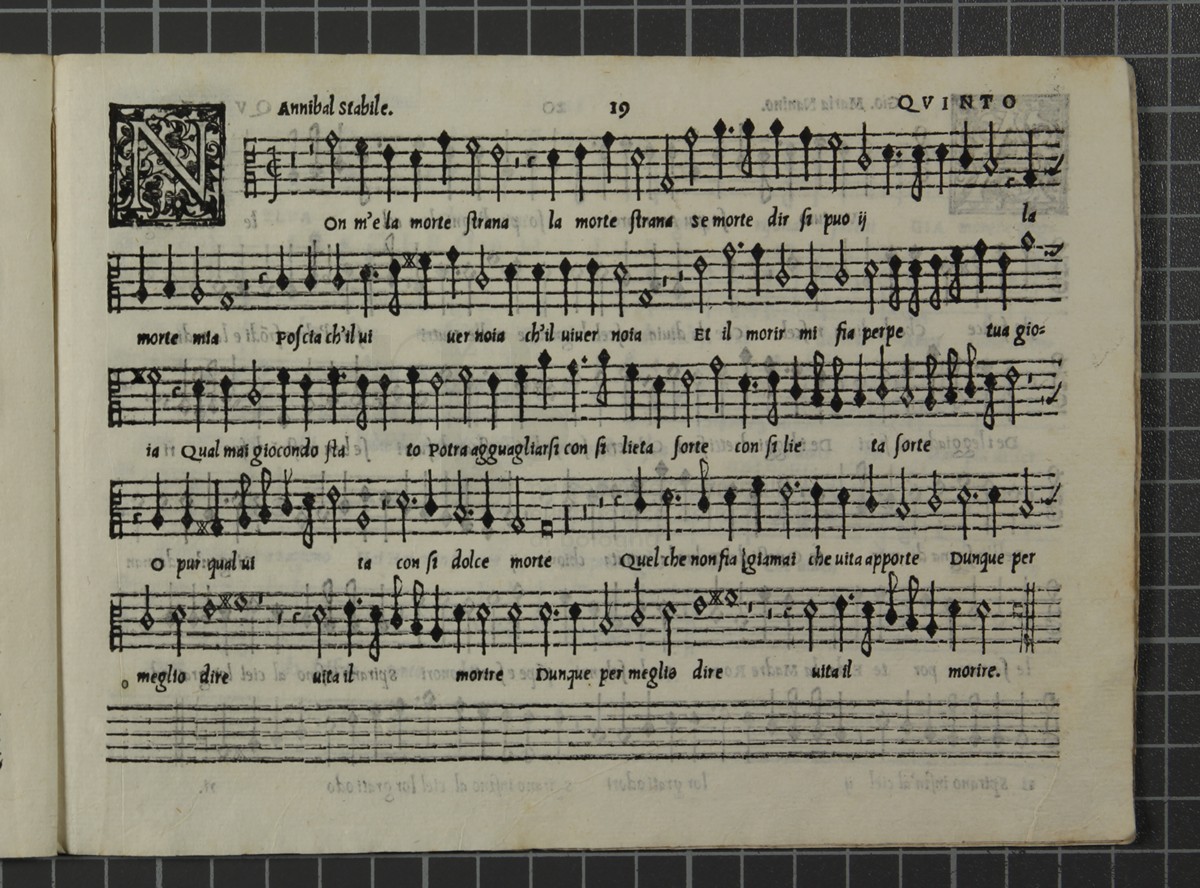 Annibal Stabile. 19 QVINTO
NOn m'e la morte ſtrana la morte ſtrana Se morte dir ſi puo ij la
morte mia Poſcia ch'il ui uer noia ch'il uiuer noia Et il morir mi fia perpe tua gio=
ia Qual mai giocondo ſta to Potra agguagliarſi con ſi lieta ſorte con ſi lie ta ſorte
O pur qual ui ta con ſi dolce morte Quel che non fia giamai che uita apporte Dunque per
meglio dire uita il morire Dunque per meglio dire uita il morire.